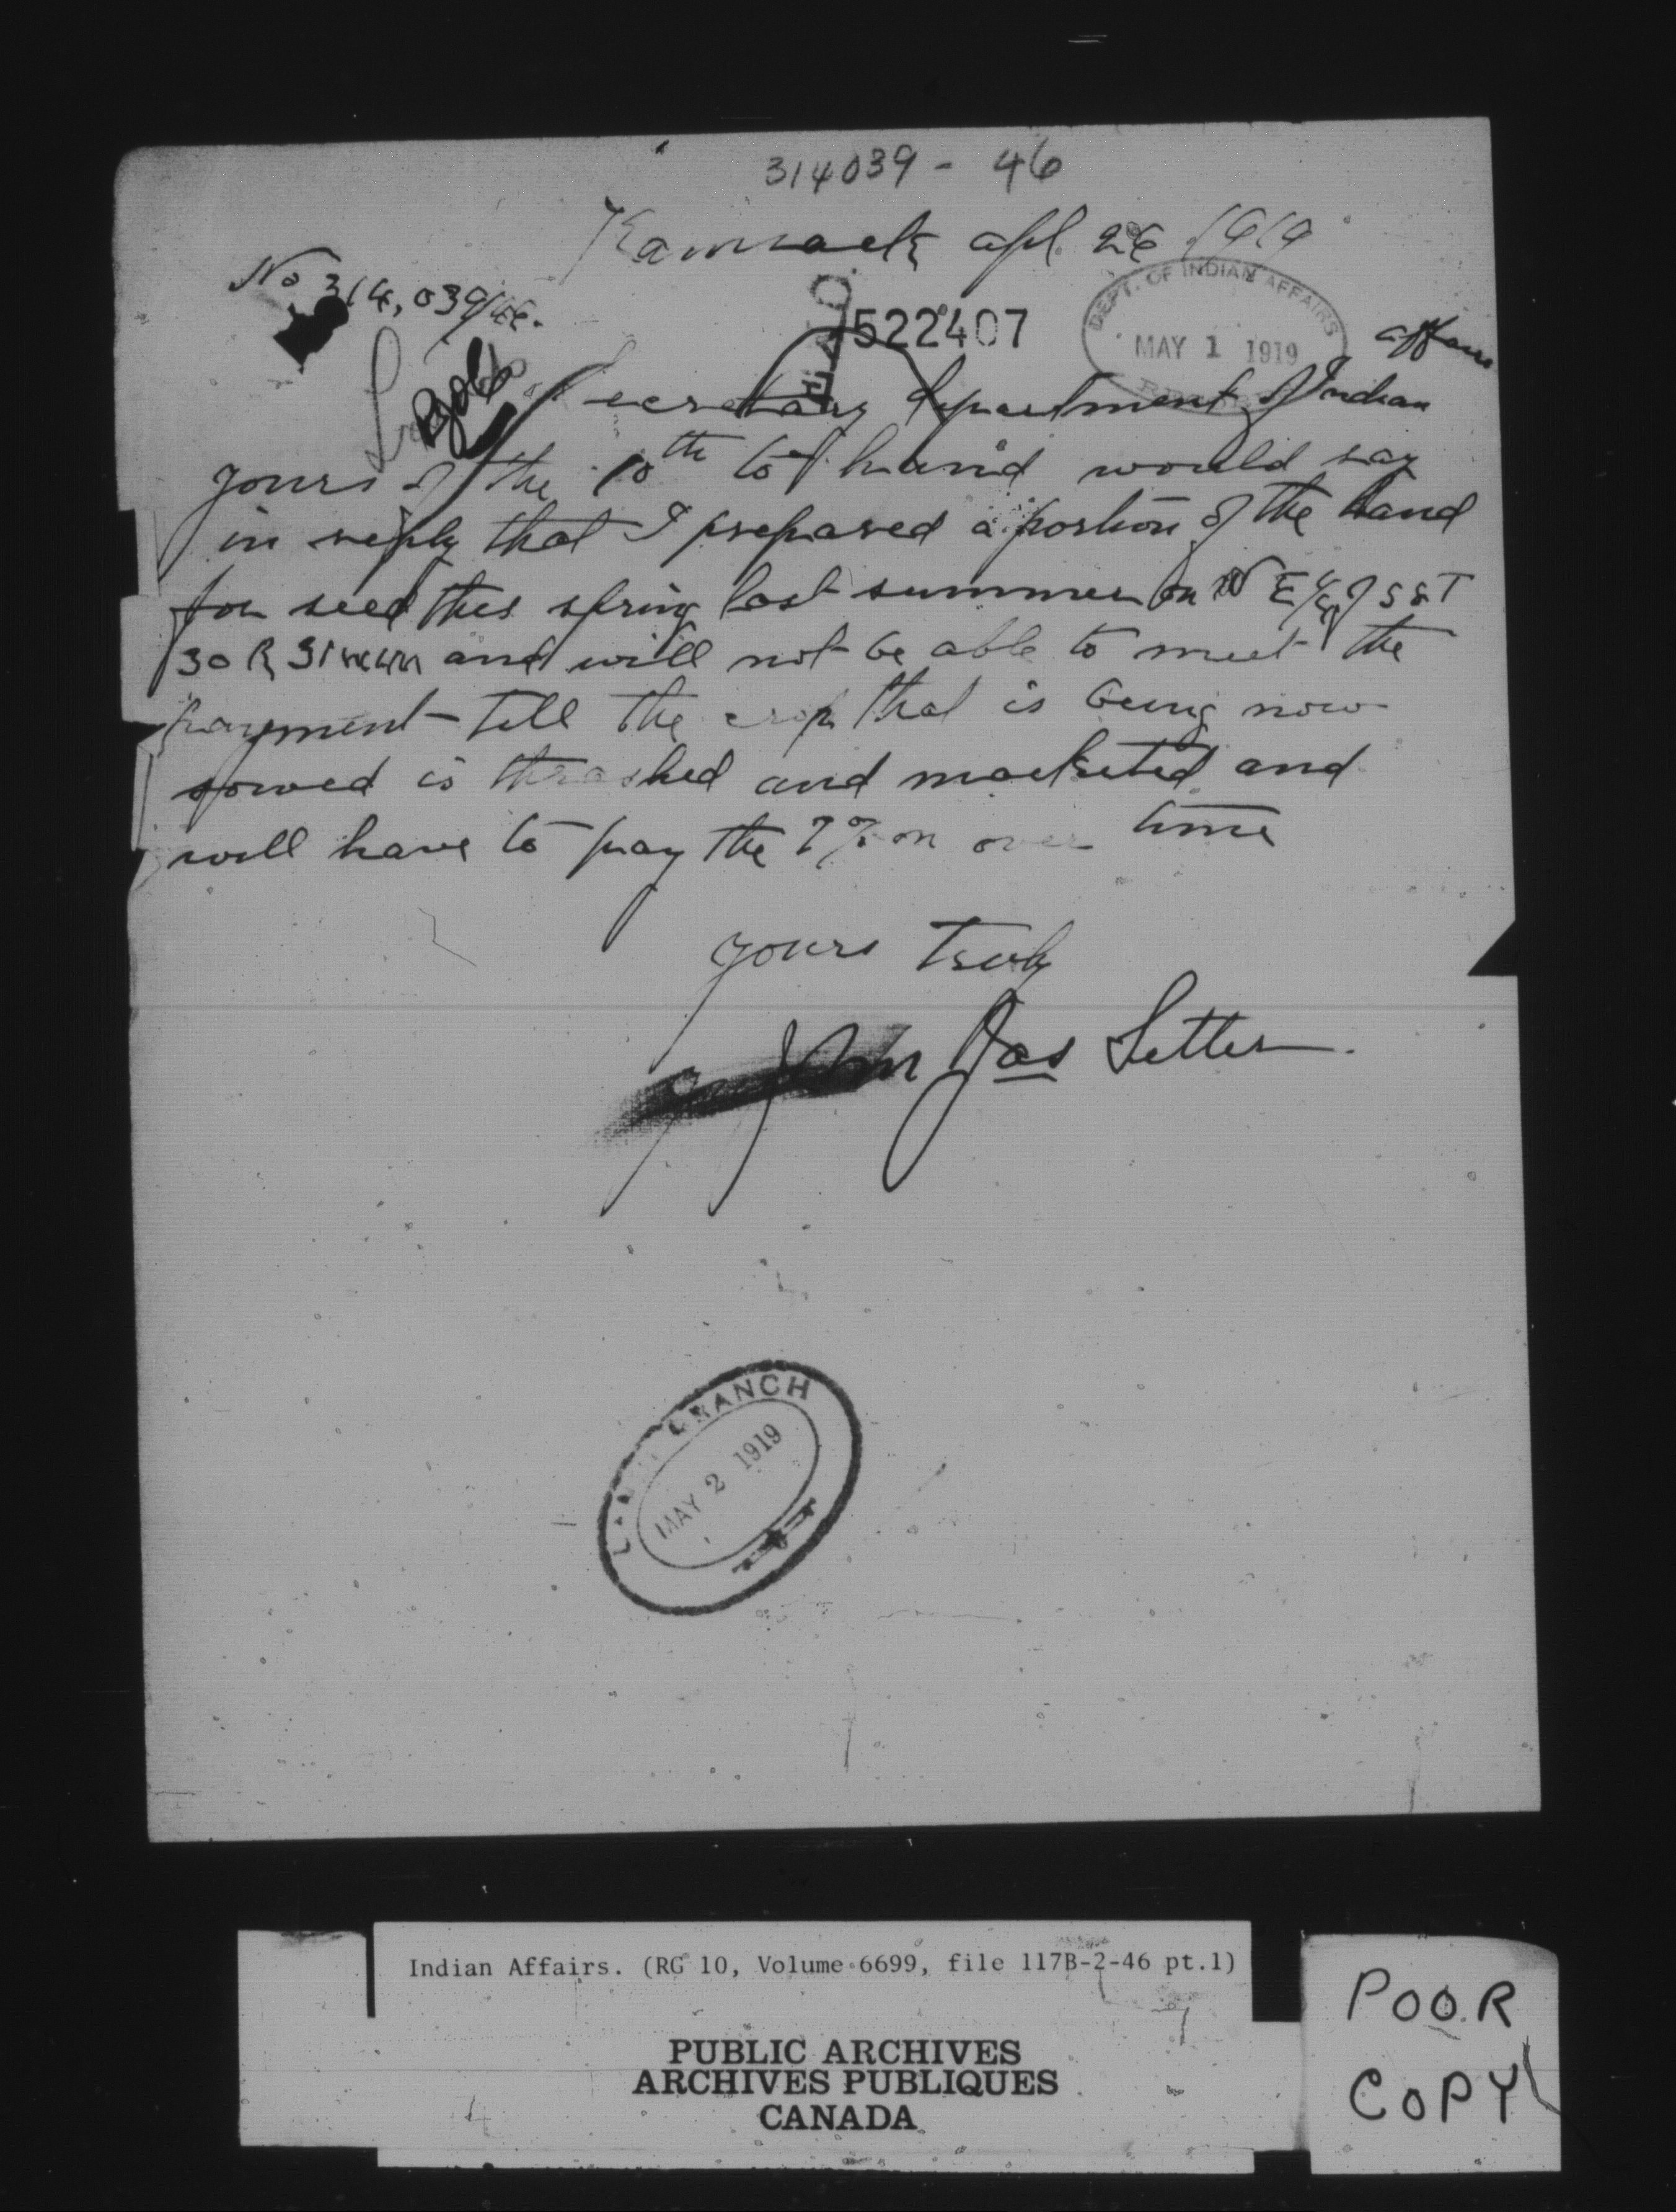 314039 - 46
Kamsack apl 26 1919
No 314,039/46.
522407
DEPT. OF INDIAN AFFAIRS
MAY 1 1919
affairs
Secretary Department of Indian
yours of the 10th to hand would say
in reply that I prepared a portion of the land
for seed this spring last summer on N E 1/4 of S 8 T
30 R 31 and will not be able to meet the
payment till the crop that is being now
sowed is thrashed and marketed and
will have to pay the 7% on over time
yours truly
Jas Setter
BRANCH
MAY 2 1919
Indian Affairs. (RG 10, Volume 6699, file 117B-2-46 pt.1)
PUBLIC ARCHIVES
ARCHIVES PUBLIQUES
CANADA
POOR
COPY